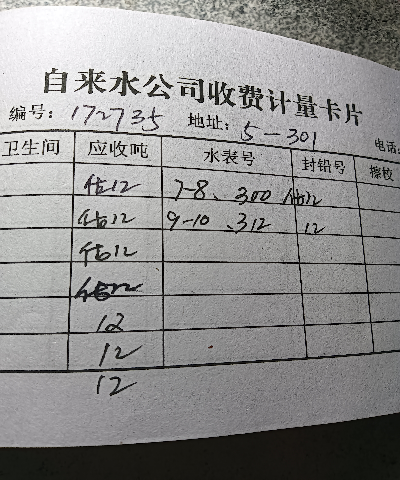 自来水公司收费计量卡片
编号: 172735 地址: 5-301 电话:
卫生间 应收吨 水表号 封铅号
估12 7-8、300 估12
估12 9-10、312 12
估12
估12
12
12
12